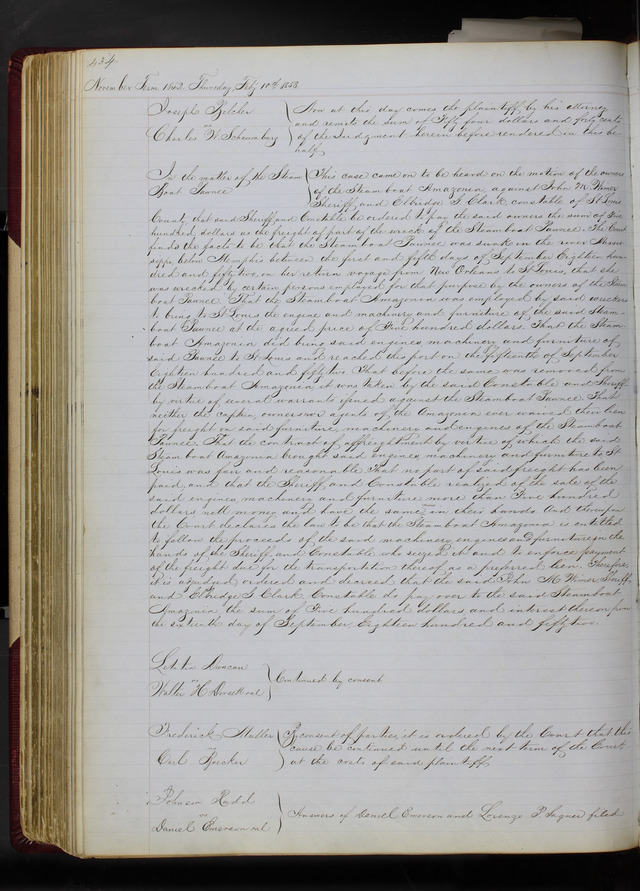 434
November Term 1852. Thursday Feby 10th 1853
Joseph Belcher
vs
Charles W. Schaumburg
Now at this day comes the plaintiff by his attorney
and remits the sum of Fifty four dollars and forty cents
of the Judgment herein before rendered in this be
half
In the matter of the Steam
Boat Pawnee
This case came on to be heard on the motion of the owners
of the Steam boat Amazonia against John M. Wimer
Sheriff, and Elbridge G Clark constable of St Louis
County that said Sheriff and Constable be ordered to pay the said owners the sum of Five
hundred dollars as the freight of part of the wreck of the Steamboat Pawnee. The Court
finds the facts to be that the Steam boat Pawnee was sunk in the river Missis
sippi below Memphis between the first and fifth days of September Eighteen hun
dred and fifty two, on her return voyage from New Orleans to St Louis, that she
was wrecked by certain persons employed for that purpose by the owners of the Steam
boat Pawnee. That the Steamboat Amazonia was employed by said wreckers
to bring to St Louis the engine and machinery and furniture of the said Steam-
boat Pawnee at the agreed price of Five hundred dollars. That the Steam-
boat Amazonia did bring said engines, machinery and furniture of
said Pawnee to St Louis and reached the port on the fifteenth of September
Eighteen hundred and fifty two. That before the same was removed from
the Steamboat Amazonia it was taken by the said Constable and Sheriff
by virtue of several warrants issued against the Steamboat Pawnee. That
neither the captain, owners or agents of the Amazonia ever waived their lien
for freight on said furniture, machinery and engines of the Steamboat
Pawnee. That the contract of affreightment by virtue of which the said
Steam boat Amazonia brought said engines, machinery and furniture to St
Louis was fair and reasonable. That no part of said freight has been
paid, and that the Sheriff and Constable realized of the sale of the
said engines, machinery and furniture more than Five hundred
dollars nett money and have the same in their hands. And thereupon
the Court declares the law to be that the Steamboat Amazonia is entitled
to follow the proceeds of the said machinery engines and furniture in the
hands of the Sheriff and Constable who seized it and to enforce payment
of the freight due for the transportation thereof as a preferred lien. Therefore,
it is adjudged, ordered and decreed that the said John M Wimer Sheriff
and Elbridge G Clark Constable do pay over to the said Steamboat
Amazonia the sum of Five hundred dollars and interest thereon from
the sixteenth day of September, Eighteen hundred and fifty two.
Letitia Duncan
vs
Walter H Dorsett et al
Continued by consent
Frederick Muller
vs
Carl Roecker
By consent of parties, it is ordered by the Court that this
cause be continued until the next term of the Court
at the costs of said plaintiff.
Johnson
vs
Daniel Emerson et al
Answers of Daniel Emerson and Lorenzo P. filed